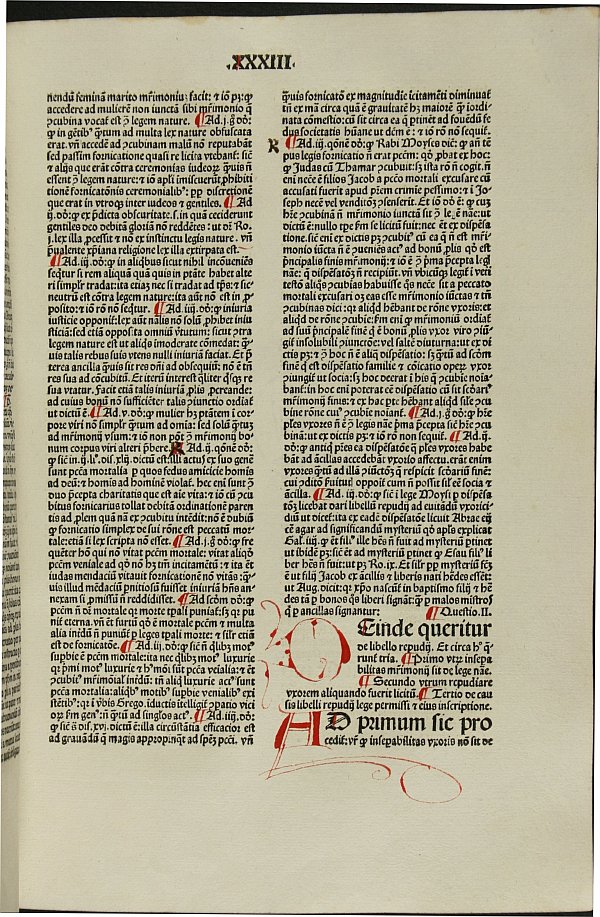 .XXXIII.
nendū feminā marito mr̄imoniū facit: et iō pꝫ: ꝙ
accedere ad mulierē non iunctā sibi mr̄imonio ꝗ
ꝯcubina vocat̄ est ꝯ̄ legem nature. ¶ Ad .j. g̊ dō:
ꝙ in gētibꝰ quātum ad multa lex nature obfuscata
erat. vn̄ accedē ad ꝯcubinam malū nō reputabāt
sed passim fornicatione quasi re licita vtebant̄: sic̄
et alijs que erāt cōtra ceremonias iudeoꝝ quis n̄
essent ꝯ̄ legem nature: et iō apl̄i īmiscuerūt ꝓhibiti
tionē fornicatōnis ceremonialibꝰ: ꝓp discretionē
que erat in vtroqꝫ inter iudeos et gentiles. ¶ Ad
.ij. dō: ꝙ ex p̄dicta obscuritate .s. in quā ceciderunt
gentiles deo debitā gloriā nō reddētes: ut dr̄ Ro.
.j. lex illa ꝓcessit et nō ex instinctu legis nature. vn̄
p̄ualente xp̄iana religione lex illa extirpata est.
¶ Ad .iij. dō: ꝙ in aliqbus sicut nihil incōueniēs
seqtur si rem aliquā quā quis in ptāte habet alte
ri simplr̄ tradat: ita etiā nec si tradat ad tp̄s: et sic
neutrū est cōtra legem nature: ita aūt nō est in ꝓ
posito: et iō rō nō seqtur. ¶ Ad .iiij. dō: ꝙ iniuria
iusticie opponit̄: lex aūt nālis nō solū ꝓhibet iniu
sticiā: sed etiā opposita omniū v̄tutum: sicut ꝯtra
legem nature est ut aliqs imoderate cōmedat: ꝙ
uis talis rebus suis vtens nulli iniuriā faciat. Et p̄
terea ancilla quis sit res dn̄i ad obsequiū: nō ē tn̄
res sua ad cōcubitū. Et iterū interest qliter qsqꝫ re
sua vtatur. Facit etiā talis iniuriā ꝓli ꝓcreande:
ad cuius bonū nō sufficiēter talis ꝯiunctio ordiat̄
ut dictū ē. ¶ Ad .v. dō: ꝙ mulier hꝫ ptātem ī cor
pore viri nō simplr̄ quātum ad omīa: sed solū quātuꝫ
ad mr̄imoniū: et iō non pōt ꝯ̄ mr̄imonij bo
num corpus viri alteri p̄bere. Ad .ij. qōnē dō:
ꝙ sic̄ in .ij. li. dis. xlij. dictū est: illi actus ex suo genē
sunt pctā mortalia p quos fedus amicicie homis
ad deū: et homis ad hominē violat̄. hec eni sunt
duo p̄cepta charitatis que est aie vita: et iō cū ꝯcu
bitus fornicarius tollat debitā ordinationē paren
tis ad ꝓlem quā nā ex ꝯcubitu intēdit: nō ē dubiū
ꝙ fornicatio simplex de sui rōne est peccatū mor
tale: etiā si lex scripta nō esset. ¶ Ad .j. g̊ dō: ꝙ fre
quēter hō qui nō vitat pctm̄ mortale: vitat aliqd
pctm̄ veniale ad qd nō hꝫ tm̄ incitamētū: et ita et
iudas mendaciū vitauit fornicationē nō vitās: ꝙ
uis illud mēdaciū ꝑnitiosū fuisset iniuriā hn̄s an
nexam si ꝓmissū n̄ reddidisset. ¶ Ad scdm dō: ꝙ
pctm̄ n̄ dr̄ mortale qr morte tp̄ali puniat̄: sꝫ qr pu
nit̄ eterna. vn̄ et furtū qd ē mortale pctm̄ et multa
alia inēdū n̄ puniūt̄ ꝑ leges tp̄ali morte: et sil̄r etiā
est de fornicatōe. ¶ Ad .iij. dō: ꝙ sic̄ n̄ qlibꝫ motꝰ
supbie ē pctm̄ mortale: ita nec qlibꝫ motꝰ luxurie
qr p̄mi motꝰ luxurie et hmōi sūt pctā venialia: et
ꝯcubitꝰ mr̄imonial̄ inēdū: tn̄ aliq luxurie actꝰ sunt
pctā mortalia: aliqbꝰ motibꝰ supbie venialibꝰ exi
stētibꝰ: qr ī v̄bis Grego. iductis ītelligit̄ ꝯparatio vici
oꝝ fm̄ genꝰ: n̄ quātū ad singlos actꝰ. ¶ Ad .iiij. dō:
ꝙ sic̄ s̄ dis. xvj. dictū ē: illa circūstātia efficacior est
ad grauādū ꝗ magis appropinqt ad spēꝫ pcci. vn̄
quis fornicatō ex magnitudīe īcitamēti diminuat̄
tn̄ ex mā circa quā ē grauitatē hꝫ maiorē ꝙ iordi
nata cōmestio: cū sit circa ea ꝗ ptinēt ad fouēdū fe
dus societatis hūane ut dcm̄ ē: et iō rō nō sequit̄.
¶ Ad .iij. qōnē dō: ꝙ Rabi Moyses dic̄: ꝙ an̄ tē
pus legis fornicatio n̄ erat pctm̄: qd ꝓbat ex hoc:
ꝙ Judas cū Thamar ꝯcubuit: sꝫ ista rō n̄ cogit. n̄
eni necē ē filios Jacob a pctō mortali excusare cū
accusati fuerīt apud p̄rem crimīe pessimo: et ī Jo
seph necē vel venditōꝫ ꝯsenserīt. Et iō dō ē: ꝙ cuꝫ
hr̄e ꝯcubinā n̄ mr̄imonio iunctā sit ꝯ̄ le. nāe: ut
dictū ē: nullo tpe fm̄ se licitū fuit: nec et ex dispēs
atione. sic̄ eni ex dictis pꝫ ꝯcubitꝰ cū ea ꝗ n̄ est mr̄i
monio iūcta n̄ ē ꝯueniēs actꝰ ad bonū ꝓlis qd est
ꝓncipalis finis mr̄imonij: et iō ē ꝯ̄ p̄ma p̄cepta legꝭ
nāe: ꝗ dispēsatōꝫ n̄ recipiūt. vn̄ vbicūqꝫ legit̄ ī veri
testō aliqs ꝯcubias habuisse qs necē sit a peccato
mortali excusari oꝫ eas esse mr̄imonio iūctas et tn̄
ꝯcubinas dici: qr aliqd hēbant de rōne vxoris: et
aliqd de rōne ꝯcubine: fm̄ eni ꝙ mr̄imoniū ordiat̄
ad suū ꝓncipalē finē qd ē bonū ꝓlis vxor viro ꝯiū
git̄ insolubili ꝯiunctōe: vel saltē diuturna: ut ex di
ctis pꝫ: et ꝯ̄ hoc n̄ ē aliq dispēsatio: sꝫ quātū ad scdm
finē qd est dispēsatio familie et cōicatio operꝫ vxor
ꝯiungit̄ ut socia: sꝫ hoc deerat ī his ꝗ ꝯcubie noīa
bant̄: in hoc eni poterat ee dispēsatio cū sit scdariꝰ
mr̄imonij finis: et ex hac pte hēbant aliqd sil̄e ꝯcu
bine rōne cuiꝰ ꝯcubie noīant̄. ¶ Ad .j. g̊ dō: ꝙ hr̄e
ples vxores n̄ ē ꝯ̄ legis nāe p̄ma p̄cepta sic̄ hr̄e ꝯcu
binā: ut ex dictis pꝫ: et iō rō non sequit̄. ¶ Ad .ij.
dō: ꝙ antiqi p̄res ea dispēsatōe ꝗ ples vxores habe
bāt ad ancillas accedebāt vxorio affectu. erāt enim
vxores quātū ad illā ꝯiunctōꝫ ꝗ respicit scdariū finē:
cui ꝯiūctō fuitur̄ oppōit̄ cum n̄ possit sil̄ eē socia et
ācilla. ¶ Ad .iij. dō: ꝙ sic̄ ī lege Moysi ꝑ dispēsa
tōꝫ licebat dari libellū repudij ad euitādū vxorici
diū ut dicet̄: ita ex eadē dispēsatōe licuit Abrae eij
cē agar ad significandū mysteriū qd apl̄s explicat
Gal. iiij. ꝙ et filiꝰ ille hēs n̄ fuit ad mysteriū ptinet
ut ibidē pꝫ: sic̄ et ad mysteriū ptinet ꝙ Esau filiꝰ li
ber hēs n̄ fuit: ut pꝫ Ro. ix. Et sil̄r ꝓp mysteriū fcm̄
ē ut filij Jacob ex ācillis et liberis nati hēdes essēt:
ut Aug. dicit: qr xp̄o nascūt̄ in baptismo filij et hē
des tā ꝑ bonos qs liberi signāt: qꝫ ꝑ malos mistros
ꝗ ꝑ ancillas signantur: ¶ Questio .II.
DEinde queritur
de libello repudij. Et circa hꝰ ꝗ
runt̄ tria. ¶ Primo vtꝝ insepa
bilitas mr̄imonij sit de lege nāe.
¶ Secundo vtrum repudiare
vxorem aliquando fuerit licitū. ¶ Tertio de cau
sis libelli repudij lege permissi et eius inscriptione.
AD primum sic pro
cedit̄: vr̄ ꝙ insepabilitas vxoris nō sit de